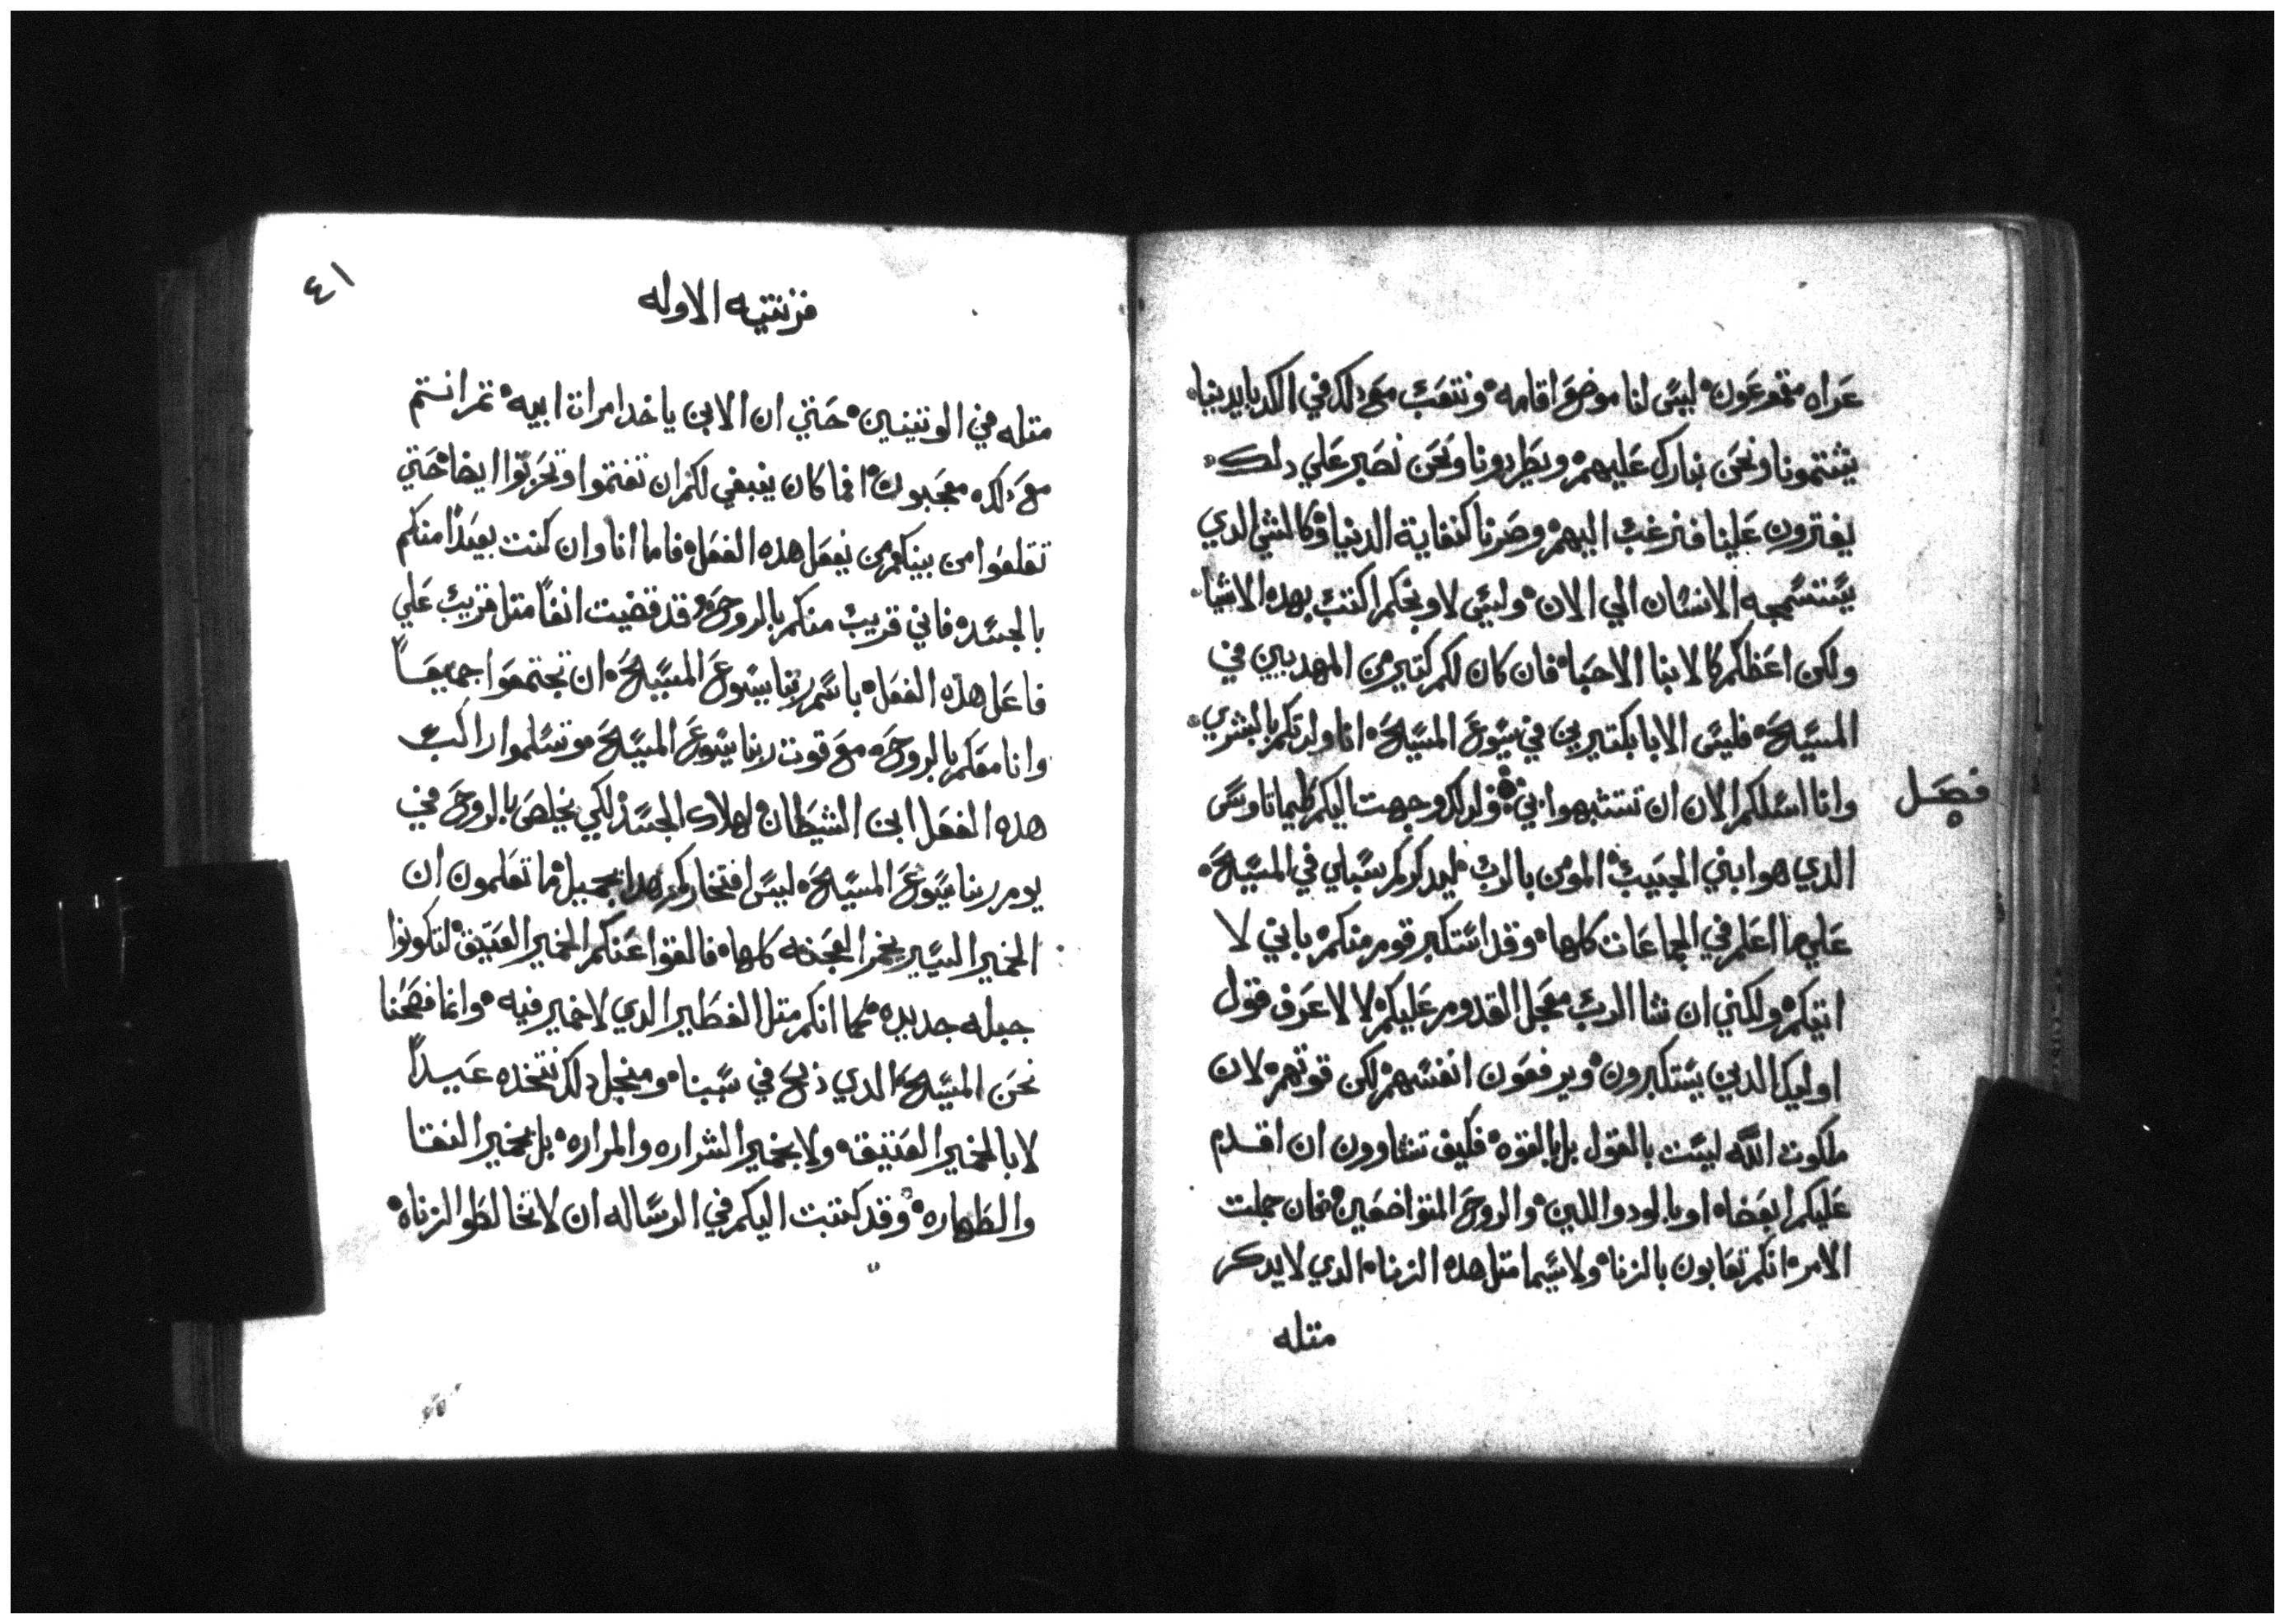 عراه مقموعون ليس لنا موضع اقامه ونتعب مع دلك في الكد بايدينا
يشتمونا ونحن نبارك عليهم ويطردونا ونحن نصبر علي دلك
يفترون علينا فنرغب اليهم وصرنا كنفاية الدنيا وكالشي الدي
يستسمجه الانسان الي الان وليس لاوبخكم اكتب بهده الاشيا
ولكن اعظكم كالابنا الاحبا فان كان لكم كتير من المهدبين في
المسيح فليس الابا بكتيرين في يسوع المسيح انا ولدتكم بالبشري
فصل
وانا اسلكم الان ان تتشبهوا بي ولدلك وجهت اليكم طيماتاوس
الدي هو ابني الحبيب المومن بالرب ليدكركم سبلي في المسيح
علي ما اعلم في الجماعات كلها وقد استكبر قوم منكم باني لا
اتيكم ولكني ان شا الرب معجل القدوم عليكم لا لاعرف قول
اوليك الدين يستكبرون ويرفعون انفسهم لكن قوتهم لان
ملكوت الله ليست بالقول بل بالقوه فكيف تشاوون ان اقدم
عليكم ابعضاه او بالود واللين والروح المتواضعين فان جملت
الامر انكم تعابون بالزنا ولاسيما متل هده الزناه الدي لا يدكر
متله
٤١
قرنتيه الاوله
متله في الوتنيين حتي ان الابن ياخد امرات ابيه تم انتم
مع دلك معجبون افما كان ينبغي لكم ان تغتموا وتحزنوا ايضا حتي
تقلعوا من بينكم من يفعل هده الفعل فاما انا وان كنت بعيدا منكم
بالجسد فاني قريب منكم بالروح وقد قضيت انفا متل قريب علي
فاعل هده الفعل باسم ربنا يسوع المسيح ان تجتمعوا جميعا
وانا معكم بالروح مع قوت ربنا يسوع المسيح وتسلموا راكب
هده الفعل ابن الشيطان لهلاك الجسد لكي يخلص بالروح في
يوم ربنا يسوع المسيح ليس افتخاركم هدا بجميل ما تعلمون ان
الخمير اليسير يخمر العجنه كلها فالقوا عنكم الخمير العتيق لتكونوا
جبله جديده كما انكم متل الفطير الدي لا خمير فيه وانما فصحنا
نحن المسيح الدي دبح في سببنا ومنجل دلك نتخده عيدا
لا بالخمير العتيقه ولا بخمير الشراره والمراره بل بخمير النقا
والطهاره وقد كتبت اليكم في الرساله ان لا تخالطوا الزناه